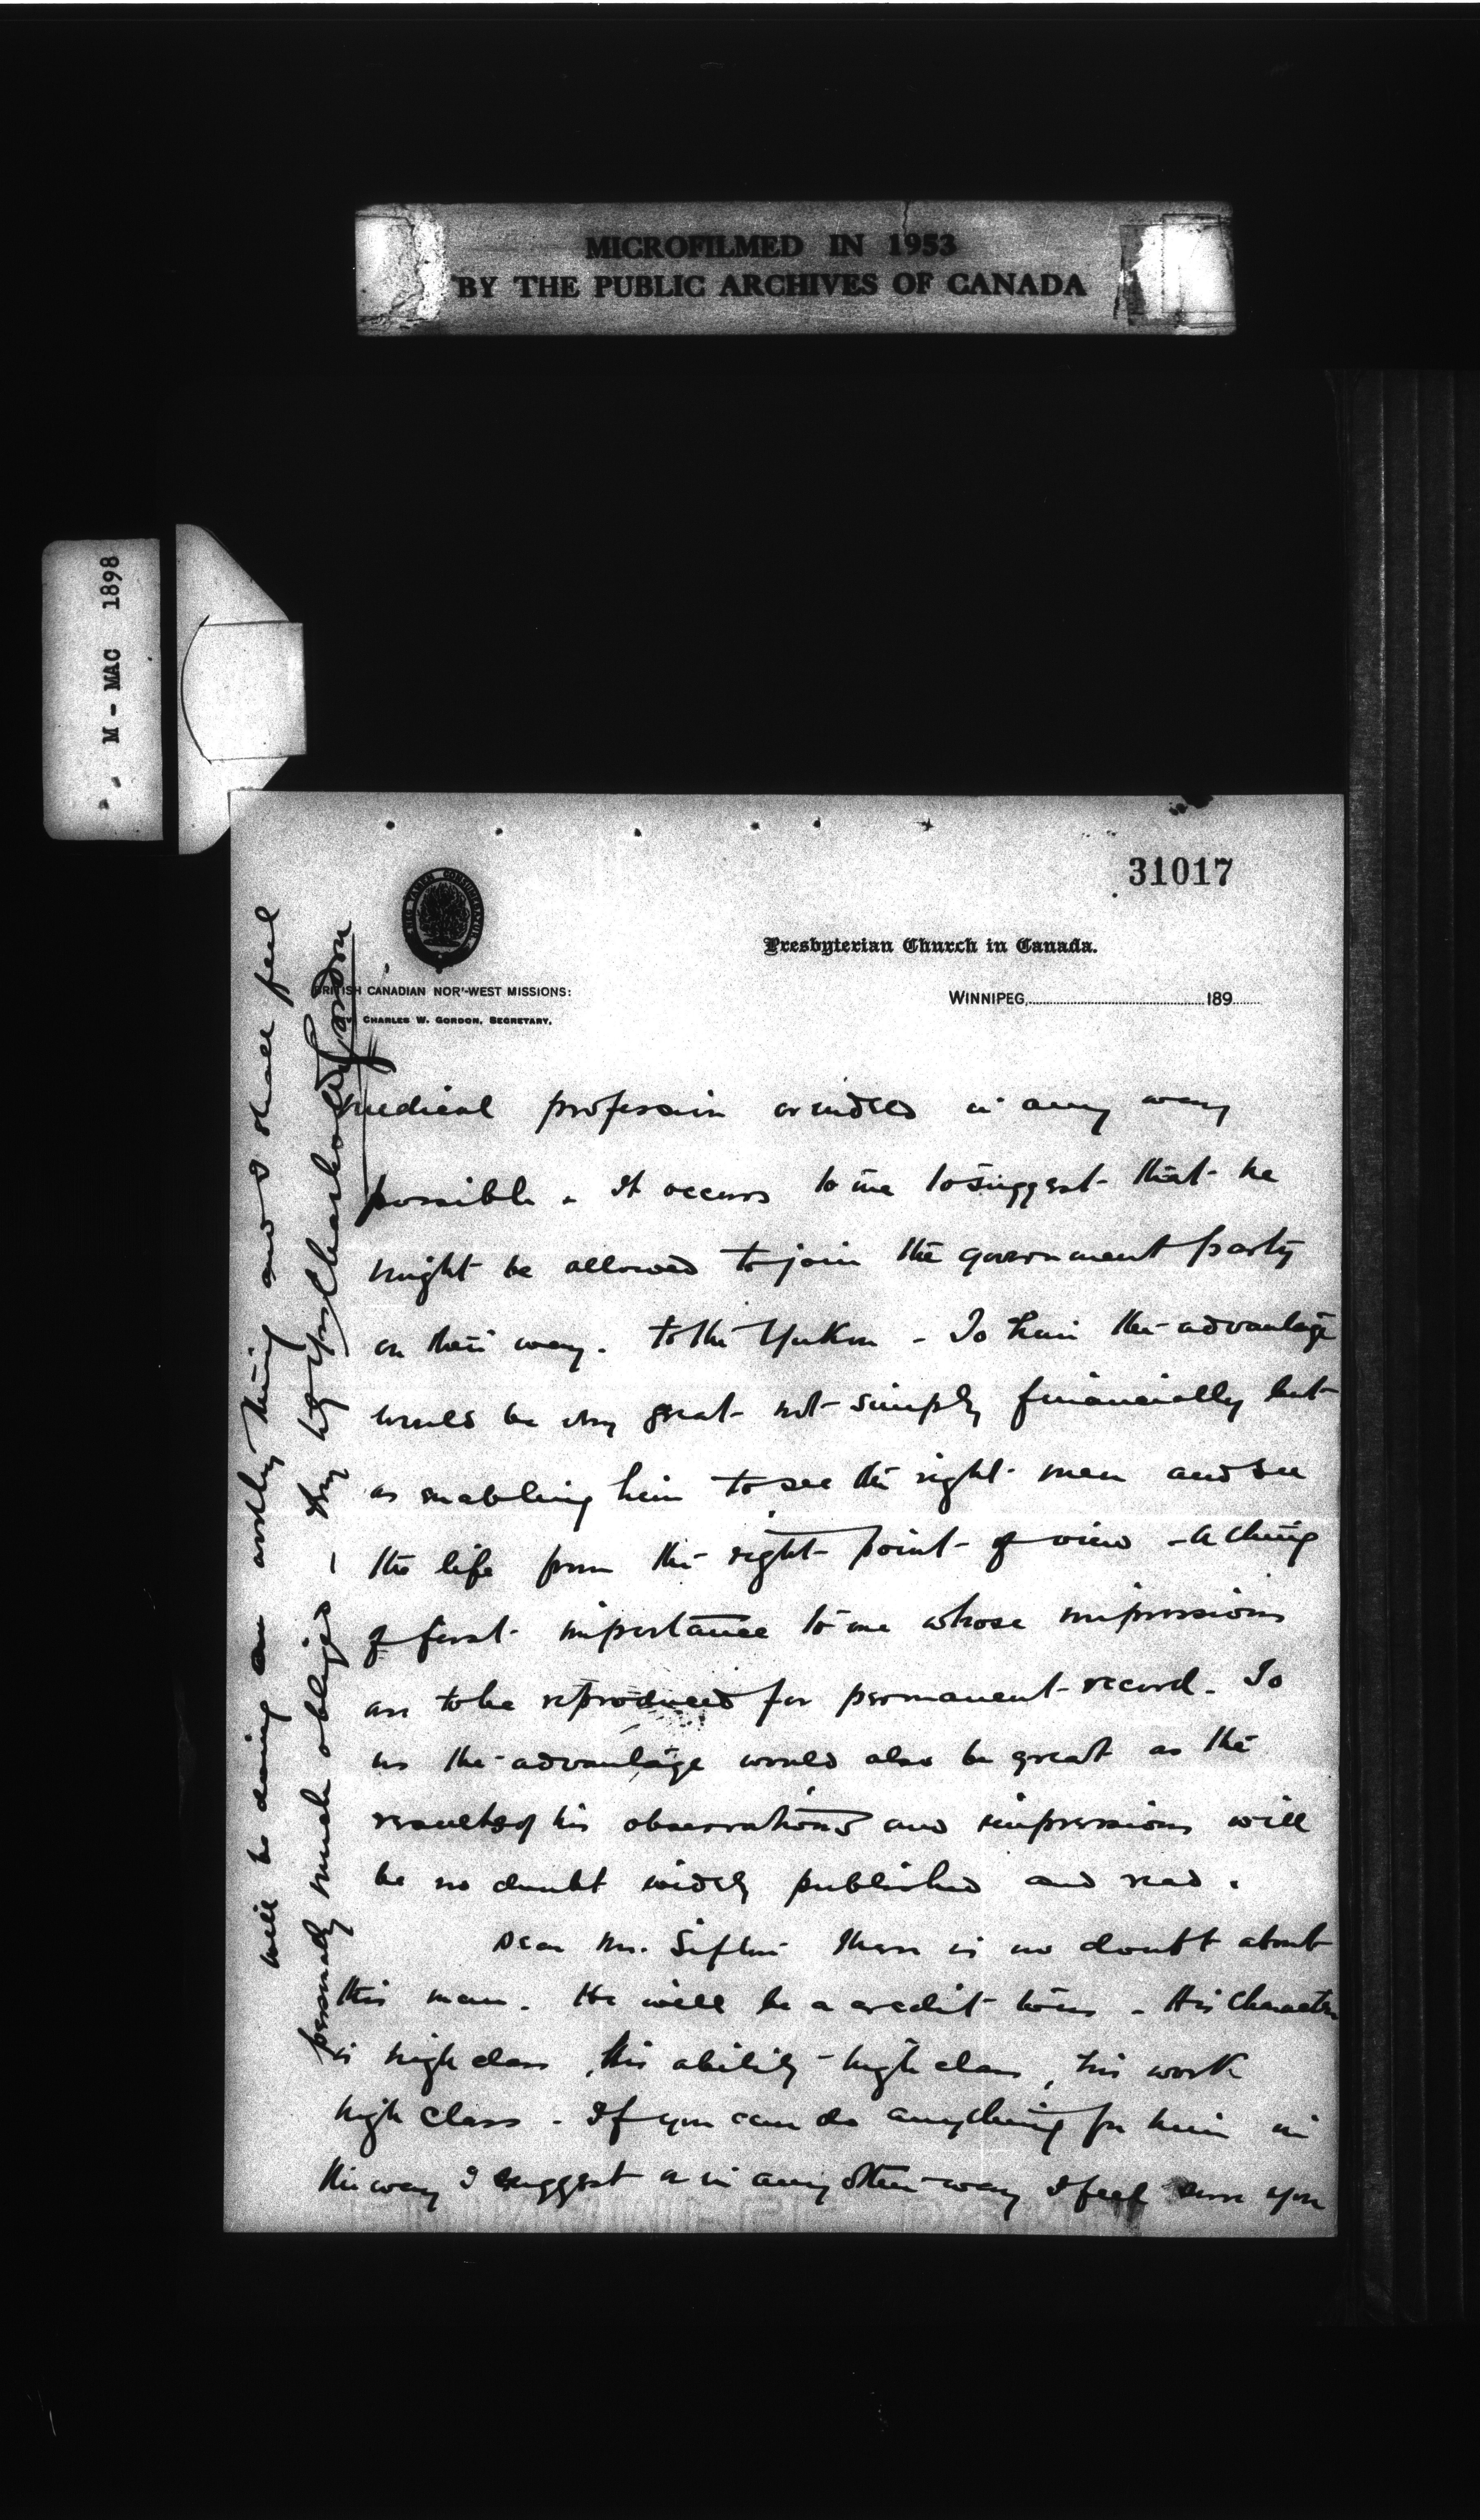 MICROFILMED IN 1953
BY THE PUBLIC ARCHIVES OF CANADA
M - MAC 1898
31017
NEC TAMEN CONSUMEBATUR
Presbyterian Church in Canada.
BRITISH CANADIAN NOR'-WEST MISSIONS:
WINNIPEG, 189
CHARLES W. GORDON, SECRETARY.
medical profession or indeed in any way
possible. It occurs to me to suggest that he
might be allowed to join the government party
on their way. to the Yukon - To him the advantage
would be very great not simply financially but
as enabling him to see the right men and see
the life from the right point of view - a thing
of first importance to one whose impressions
are to be reproduced for permanent record. To
us the advantage would also be great as the
results of his observations and impressions will
be no doubt widely published and read.
Dear Mr. Sifton There is no doubt about
this man. He will be a credit to us - His character
is high class, his ability high class, his work
high class - If you can do anything for him in
the way I suggest or in any other way I feel sure you
will be doing a worthy thing and I shall feel
personally much obliged - Charles W Gordon